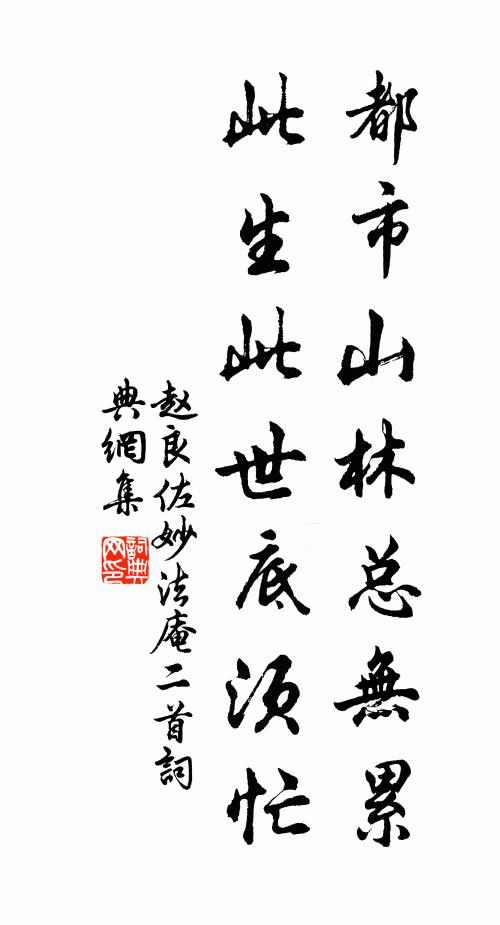 都市山林总無累
此生此世底須忙
赵良佐妙法庵二首詞
典網集
詞典
网印